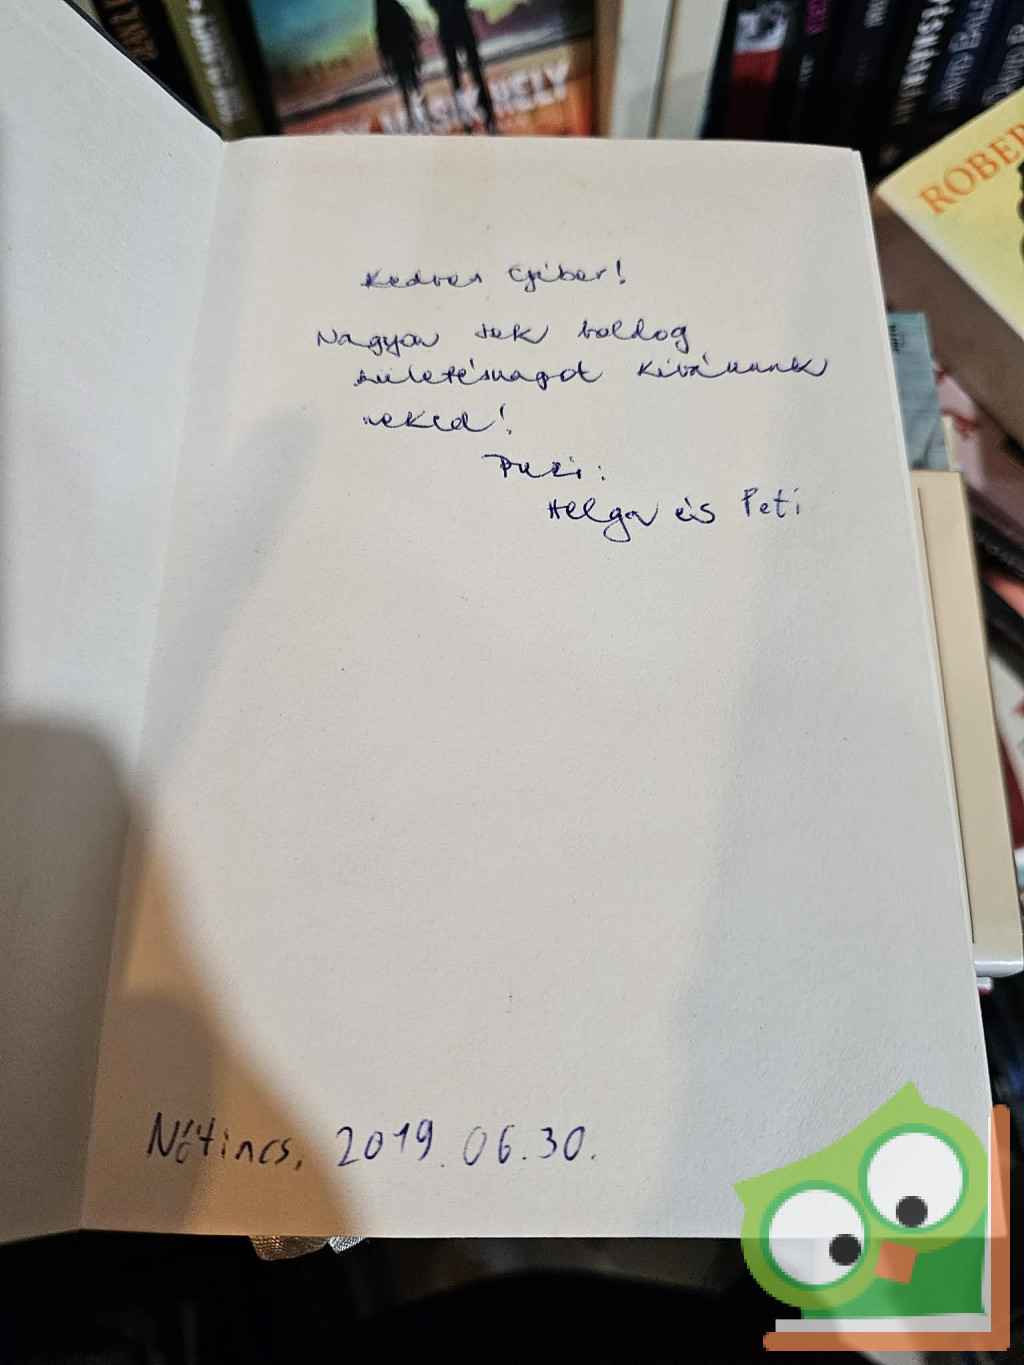 MÁSIK HELY
RÓBER
Kedves Gábor!
Nagyon sok boldog
születésnapot kívánunk
neked!
Puszi:
Helga és Peti
Nőtincs, 2019.06.30.